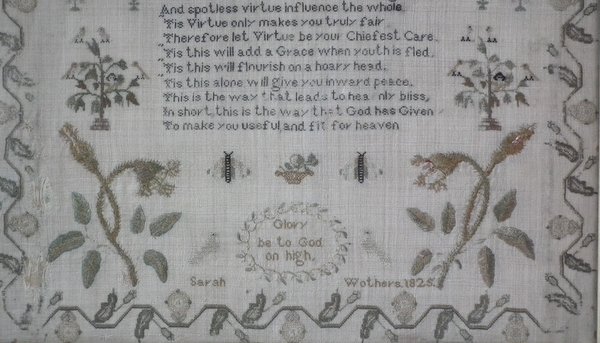 And spotless virtue influence the whole.
Tis Virtue only makes you truly fair
Therefore let Virtue be your Chiefest Care.
Tis this will add a Grace when youth is fled,
Tis this will flourish on a hoary head.
Tis this alone will give you inward peace.
This is the way that leads to hea nly bliss,
In short this is the way that God has Given
To make you useful and fit for heaven
Glory
be to God
on high,
Sarah Wothers. 1825.